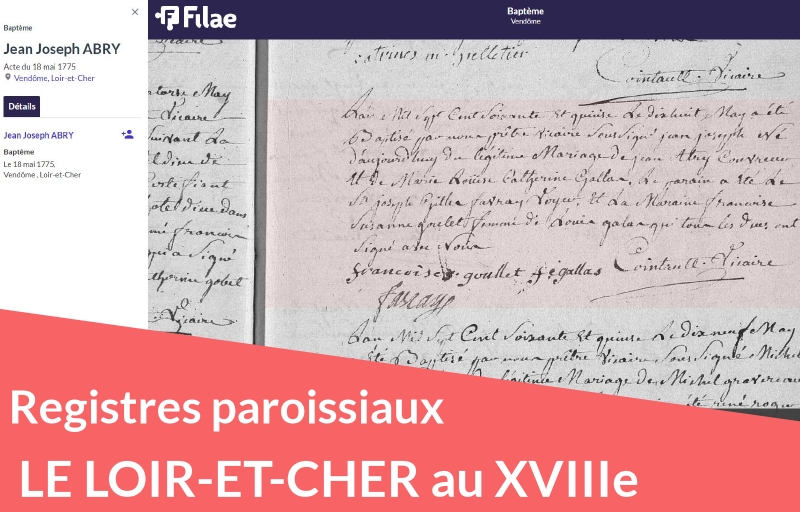 ×
Baptême
Jean Joseph ABRY
Acte du 18 mai 1775
Vendôme, Loir-et-Cher
Détails
Jean Joseph ABRY
Baptême
Le 18 mai 1775,
Vendôme , Loir-et-Cher
Filae
Baptême
Vendôme
pelletier
Cointault Vicaire
L'an Mil Sept Cent Soixante Et quinse Le dixhuit May a été
Baptisé par nous prêtre Vicaire Soussigné jean joseph Né
d'aujourd'huy du légitime Mariage de jean Abry Couvreur
Et de Marie Louise Catherine Gallas, Le parain a été Le
Sr joseph Gilles Et La Maraine francoise
Susanne goulet femme de Louis galas qui tous les deux ont
Signé avec Nous
francoise goullet fe gallas Cointault Vicaire
L'an Mil Sept Cent Soixante Et quinse Le dixneuf May
été Baptisé par nous prêtre Vicaire Soussigné Michel
légitime Mariage de Michel
May
Vicaire
Suivant La
francois
a Signé
Vicaire
Registres paroissiaux
LE LOIR-ET-CHER au XVIIIe